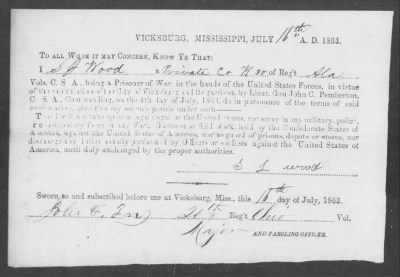 VICKSBURG, MISSISSIPPI, JULY 16th A. D. 1863.
TO ALL WHOM IT MAY CONCERN, KNOW YE THAT:
I S J Wood a Private Co K 20 Reg't Ala
Vols. C. S. A., being a Prisoner of War, in the hands of the United States Forces, in virtue
of the capitulation of the City of Vicksburg and its garrison, by Lieut. Gen John C. Pemberton,
C. S. A., Commanding, on the 4th day of July, 1863, do in pursuance of the terms of said
capitulation, give this my solemn parole under oath—
That I will not take up arms again against the United States, nor serve in any military, police,
or constabulary force in any Fort, Garrison or field work, held by the Confederate States of
America, against the United States of America, nor as guard of prisons, depots or stores, nor
discharge any duties usually performed by Officers or soldiers against the United States of
America, until duly exchanged by the proper authorities.
S J wood
Sworn to and subscribed before me at Vicksburg, Miss., this 16th day of July, 1863.
20th Reg't Ohio Vol.
Major AND PAROLING OFFICER.